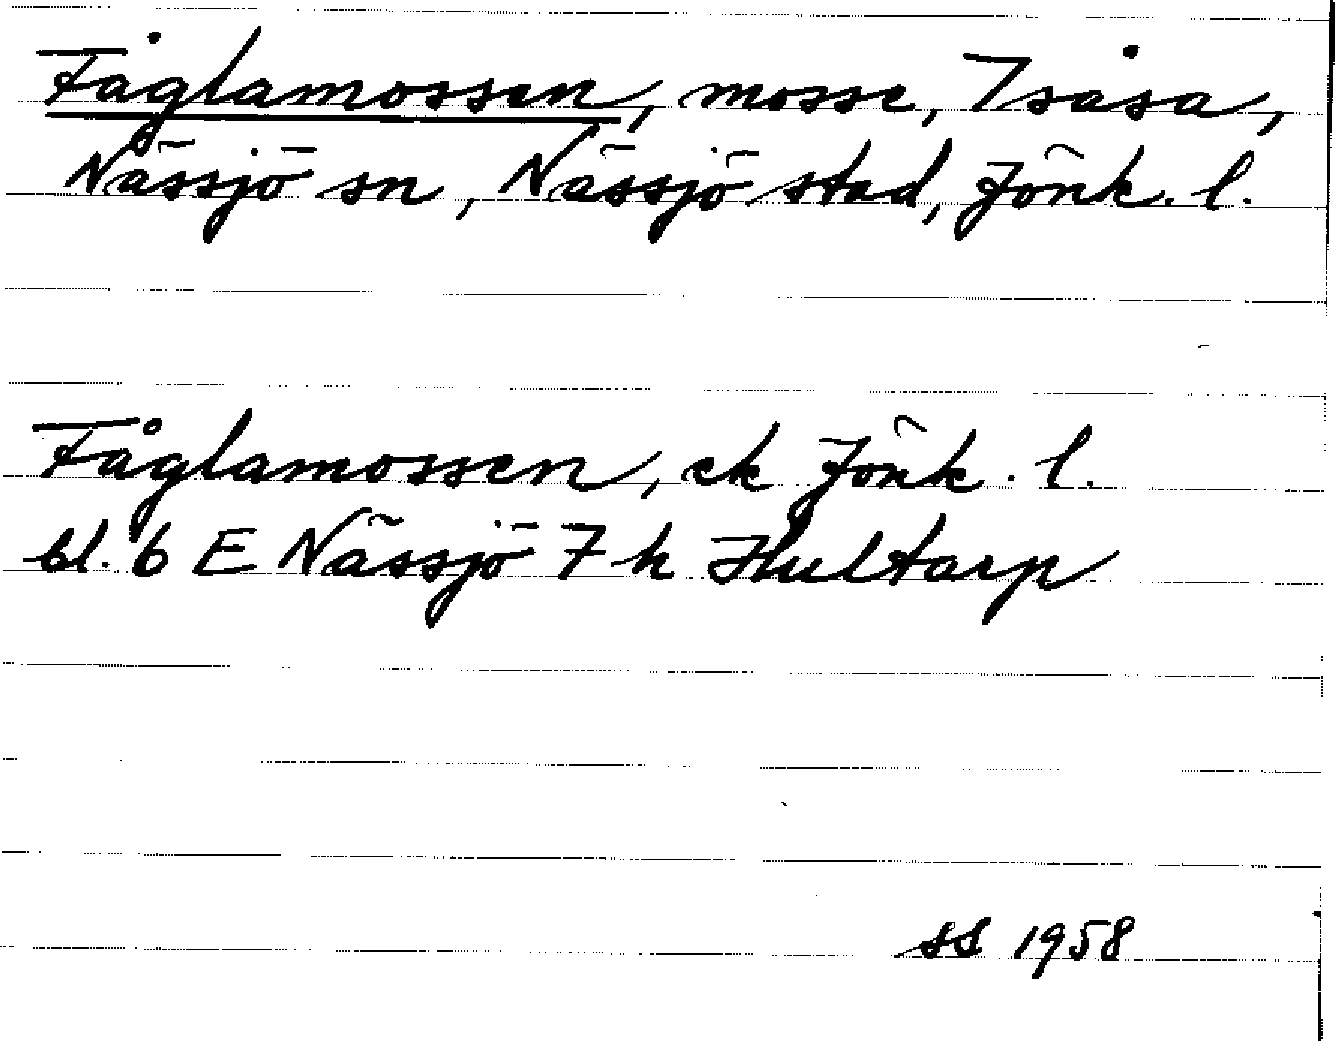 Fåglamossen, mosse, Tsåsa,
Nässjö sn, Nässjö stad, Jönk. l.
Fåglamossen, ek Jönk. l.
bl. 6 E Nässjö 7 h Hultarp
SS 1958